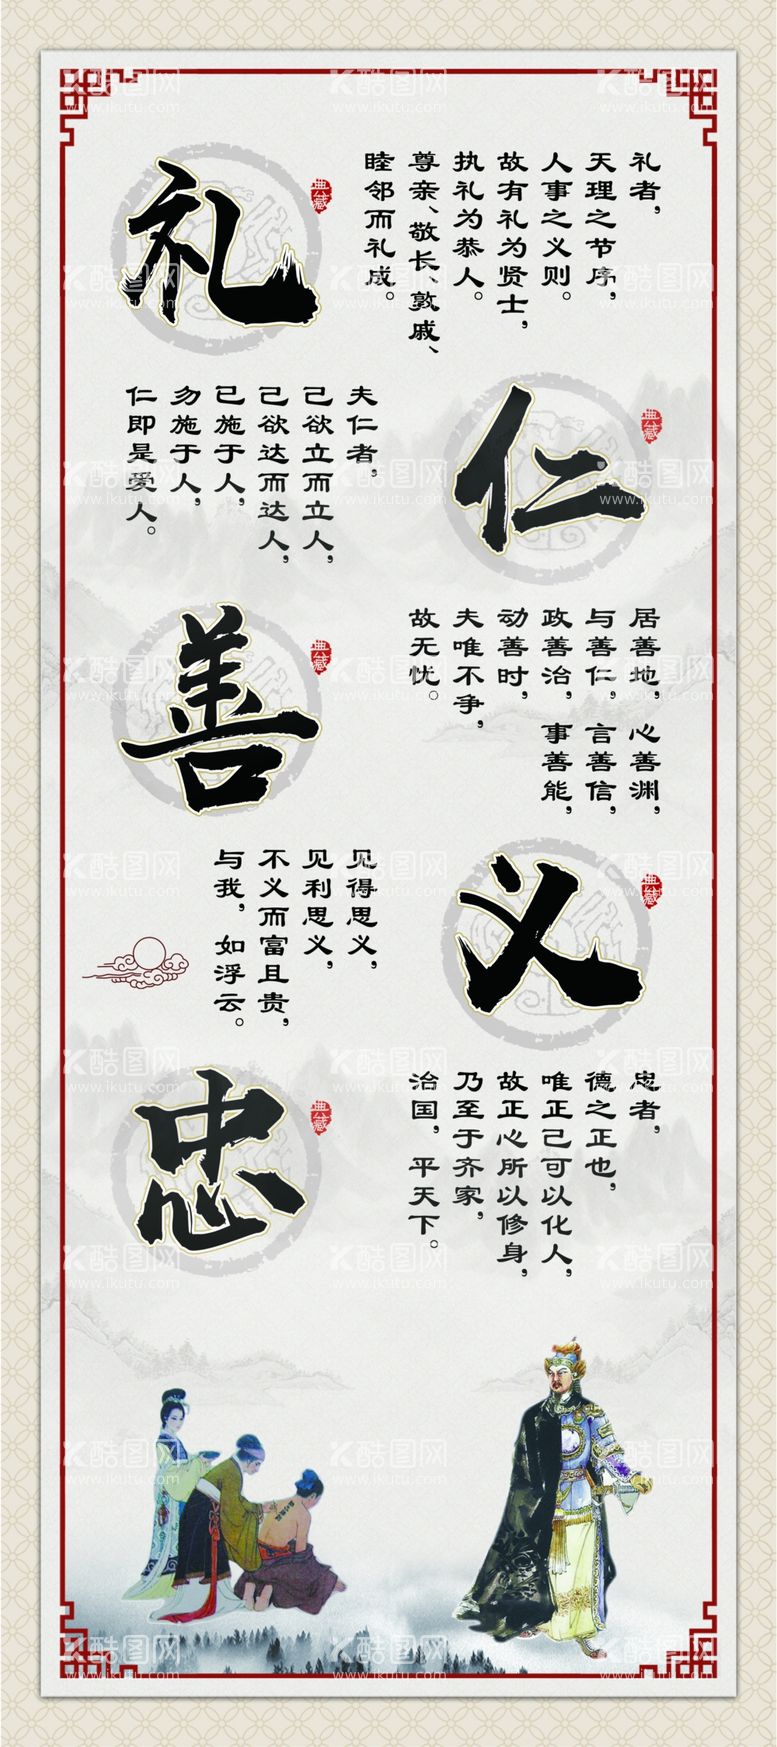 礼
典藏
礼者，
天理之节序，
人事之义则。
故有礼为贤士，
执礼为恭人。
尊亲、敬长、敦戚、
睦邻而礼成。
仁
典藏
夫仁者，
己欲立而立人，
己欲达而达人，
己施于人，
勿施于人，
仁即是爱人。
善
典藏
居善地，心善渊，
与善仁，言善信，
政善治，事善能，
动善时，
夫唯不争，
故无忧。
义
典藏
见得思义，
见利思义，
不义而富且贵，
与我，如浮云。
忠
典藏
忠者，
德之正也，
唯正己可以化人，
故正心所以修身，
乃至于齐家，
治国，平天下。
酷图网
www.ikutu.com